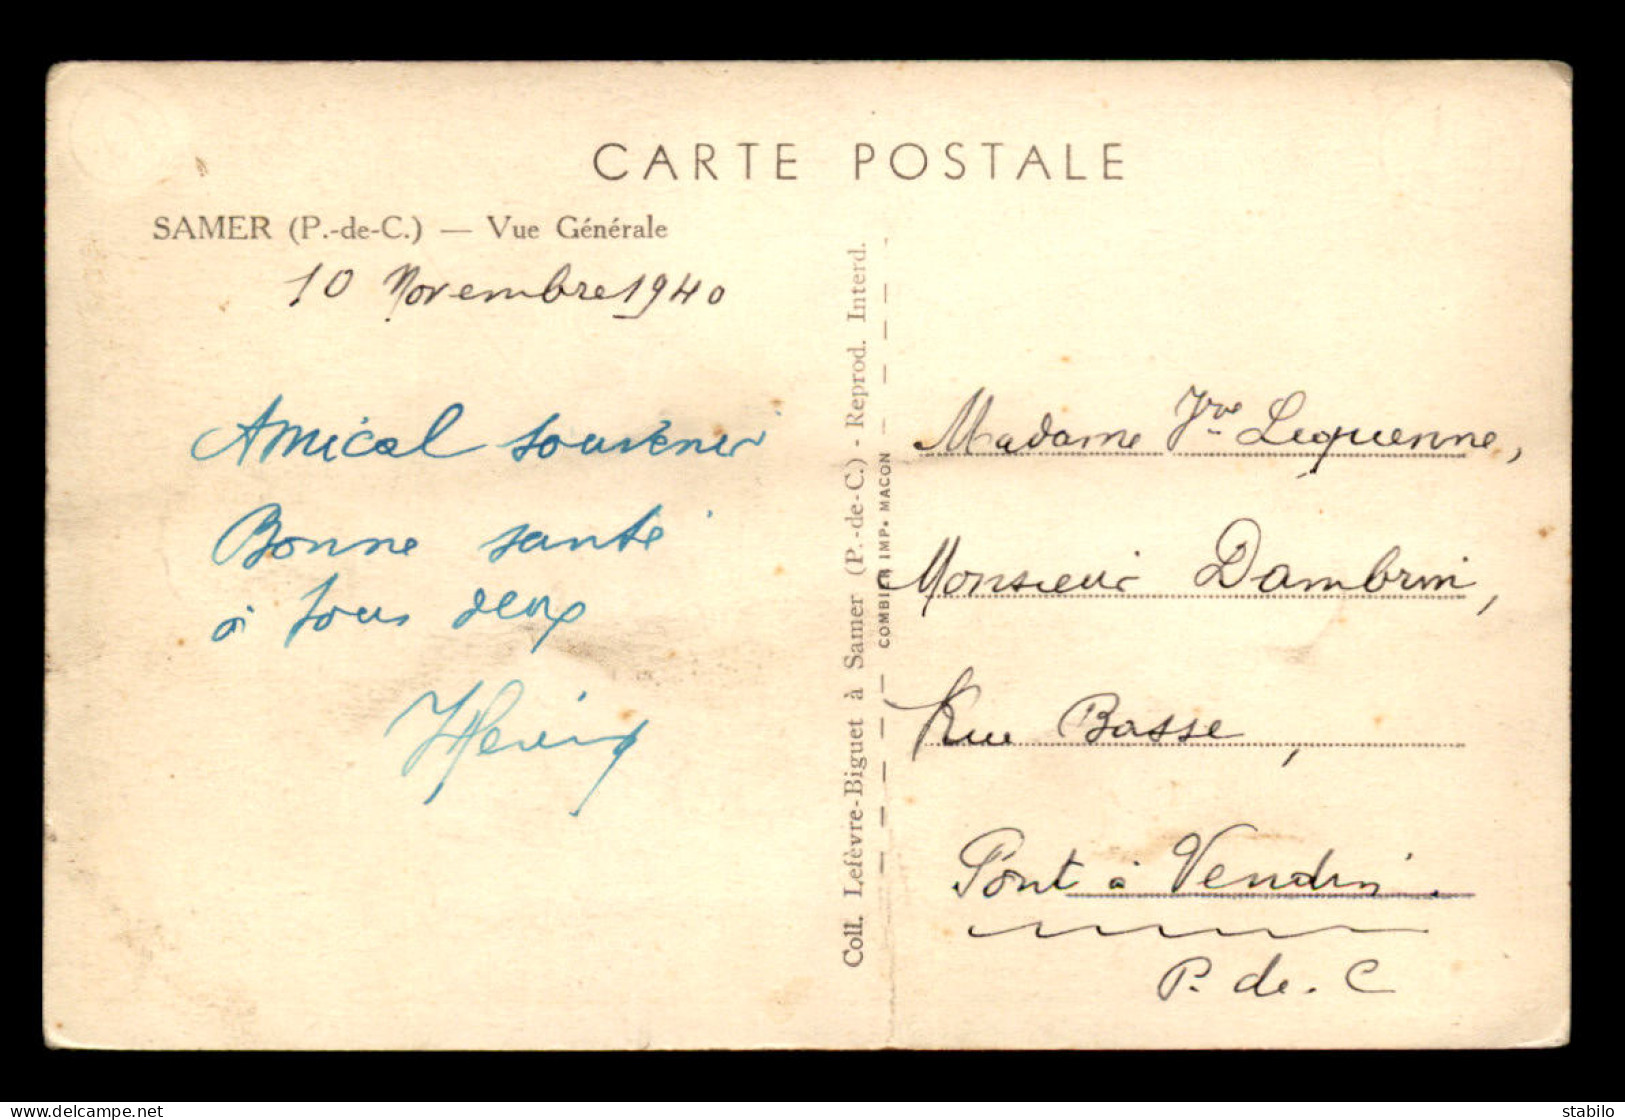 CARTE POSTALE
SAMER (P.-de-C.) — Vue Générale
10 Novembre 1940
Amical souvenir
Bonne santé
à tous deux
Coll. Lefèvre-Biguet à Samer (P.-de-C.) - Reprod. Interd.
COMBIER IMP. MACON
Madame Vve Lequenne,
Monsieur Dambrin,
Rue Basse,
Pont à Vendin.
P. de. C
stabilo